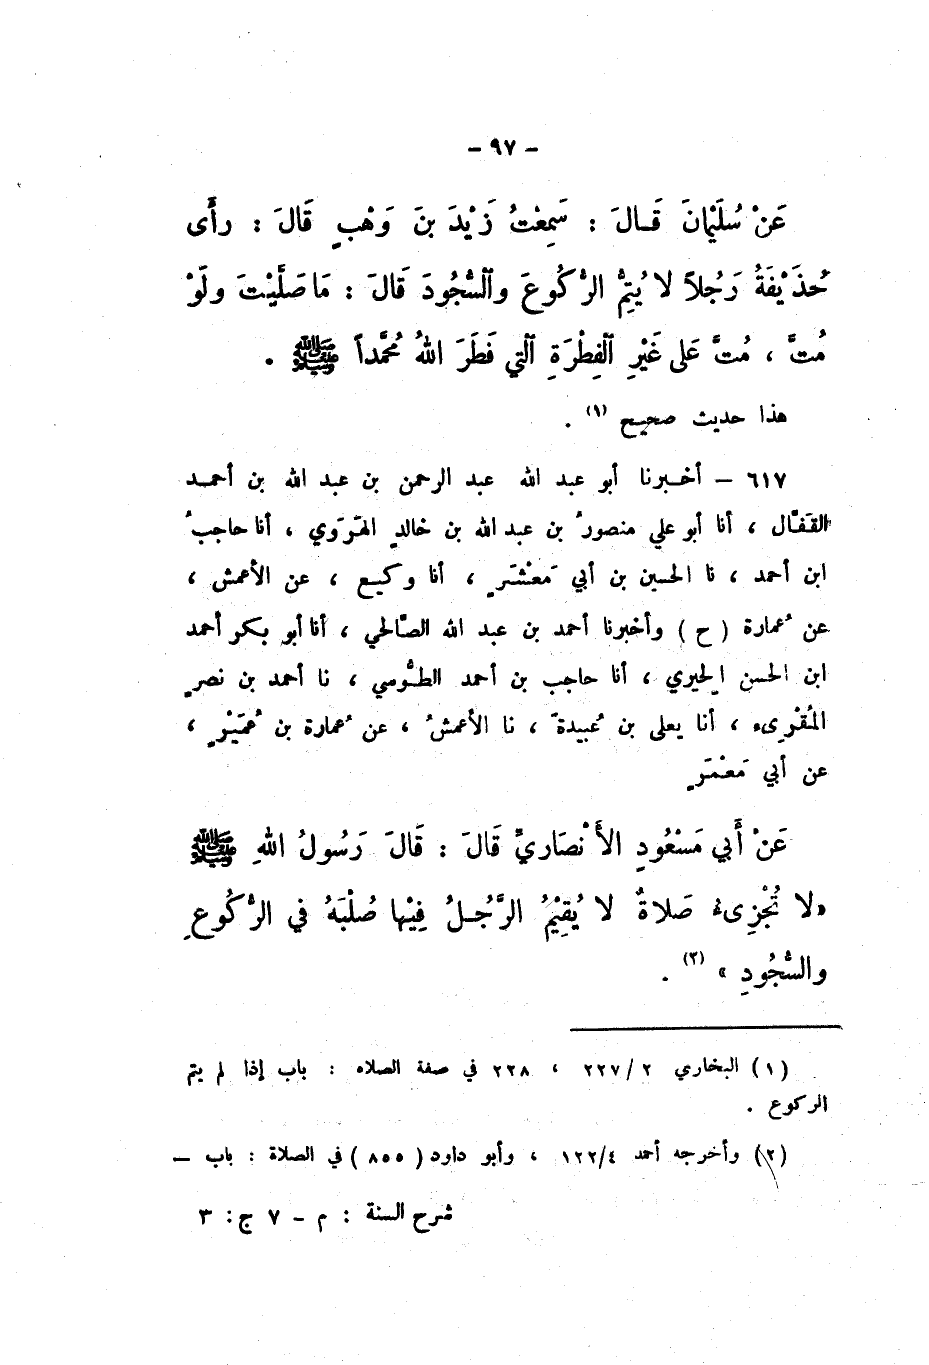 - ٩٧ -
عَنْ سُلَيْمانَ قَـالَ : سَمِعْتُ زَيْدَ بنَ وَهْبٍ قَالَ : رأَى
حُذَيْفَةُ رَجُلاً لا يُتِمُّ الرُّكُوعَ وٱلسُّجُودَ قَالَ : مَا صَلَّيْتَ ولَوْ
مُتَّ ، مُتَّ عَلى غَيْرِ ٱلفِطْرَةِ ٱلَّتي فَطَرَ اللهُ مُحَمَّداً ﷺ .
هذا حديث صحيح (١) .
٦١٧ – أخـبرنا أبو عبد الله عبد الرحمن بن عبد الله بن أحمـد
القَفّال ، أنا أبو علي منصورُ بن عبد الله بن خالدٍ الهَرَوي ، أنا حاجبُ
ابن أحمد ، نا الحسين بن أبي مَعْشَرٍ ، أنا وكيـع ، عن الأعمش ،
عن عُمارة ( ح ) وأخبرنا أحمد بن عبد الله الصّالحي ، أنا أبو بكر أحمد
ابن الحسن الحِيري ، أنا حاجب بن أحمد الطُّوسي ، نا أحمد بن نصرٍ
المُقْرِىء ، أنا يعلى بن عُبيدةَ ، نا الأعمشُ ، عن عُمارة بن عُمَيْرٍ ،
عن أبي مَعْمَرٍ
عَنْ أَبي مَسْعُودٍ الأَنْصَاريِّ قَالَ : قَالَ رَسُولُ اللهِ ﷺ
« لا تُجْزِىءُ صَلاةٌ لا يُقِيْمُ الرَّجُـلُ فِيْها صُلْبَهُ في الرُّكُوعِ
والسُّجُودِ » (٢) .
(١) البخاري ٢/٢٢٧ ، ٢٢٨ في صفة الصلاه : باب إذا لم يتم
الركوع .
(٢) وأخرجه أحمد ٤/١٢٢ ، وأبو داود ( ٨٥٥ ) في الصلاة : باب –
شرح السنة : م - ٧ ج : ٣